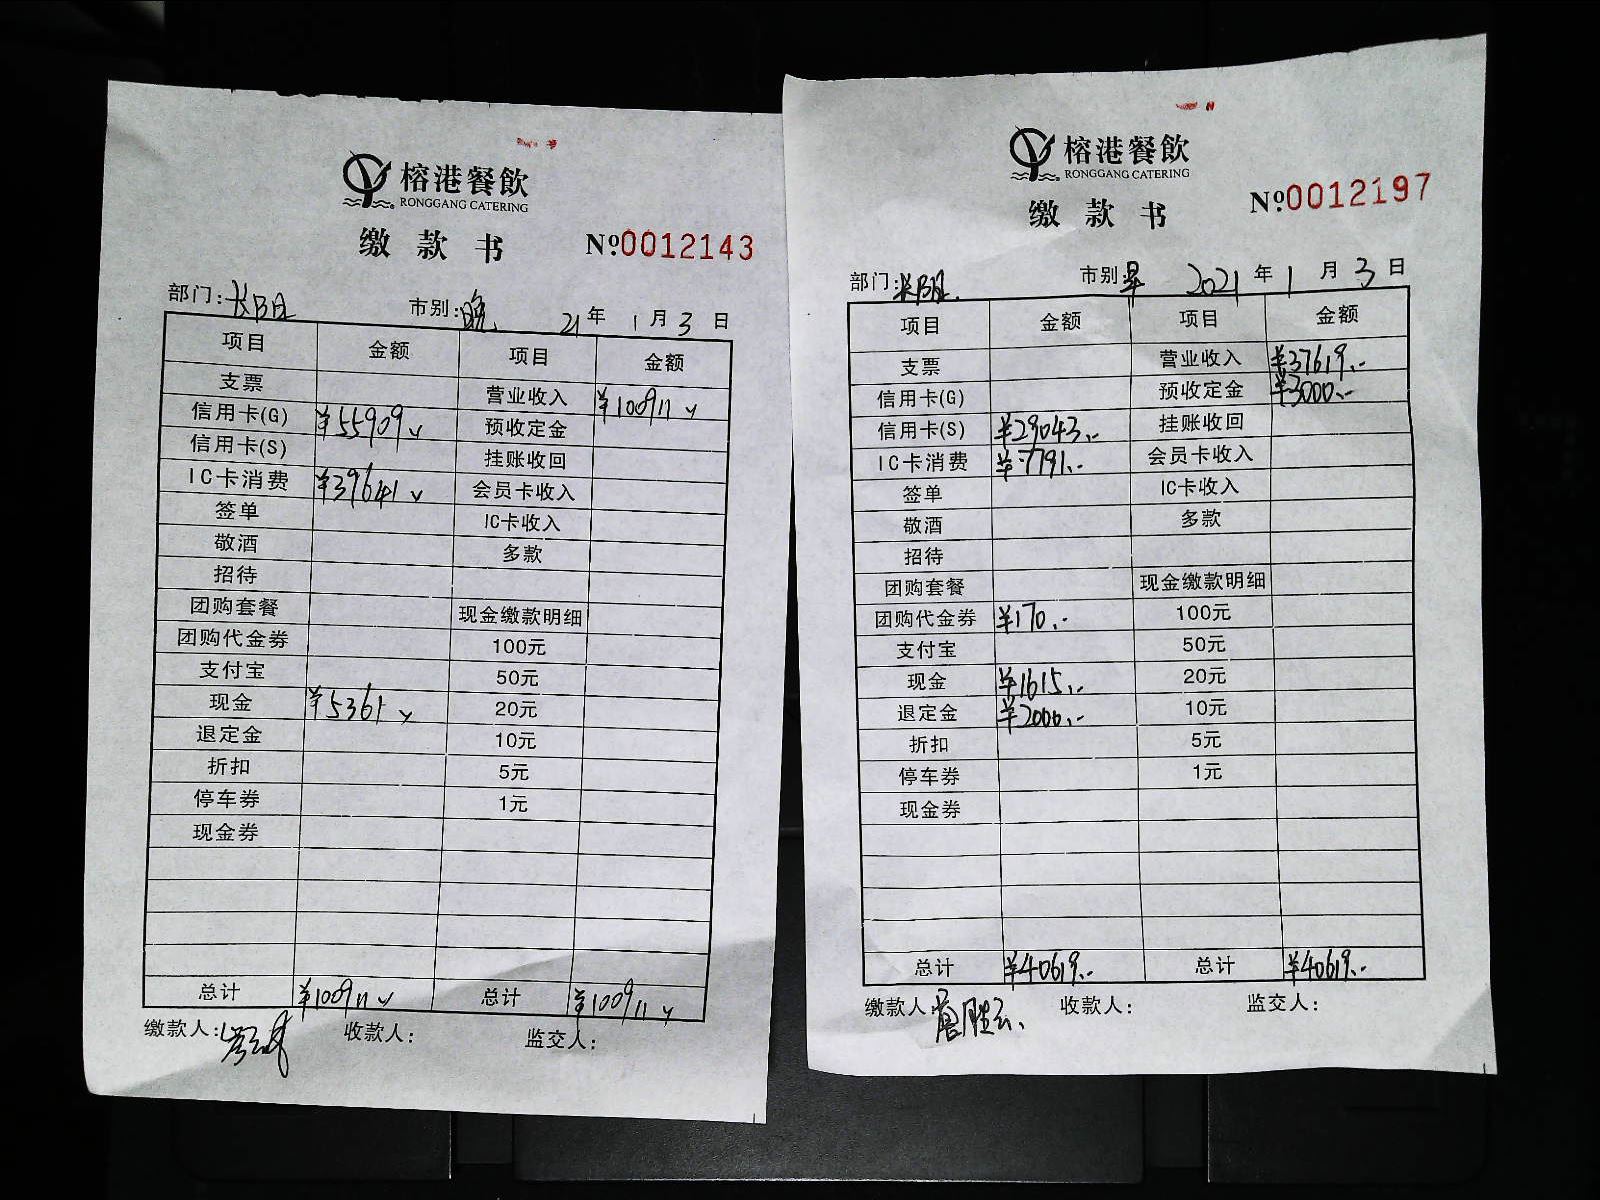 榕港餐飲
RONGGANG CATERING
缴款书 №0012143
部门: 长阳 市别: 晚 21年1月3日
项目 金额 项目 金额
支票 营业收入 ¥100911
信用卡(G) ¥55909 预收定金
信用卡(S) 挂账收回
IC卡消费 ¥39641 会员卡收入
签单 IC卡收入
敬酒 多款
招待
团购套餐 现金缴款明细
团购代金券 100元
支付宝 50元
现金 ¥5361 20元
退定金 10元
折扣 5元
停车券 1元
现金券
总计 ¥100911 总计 ¥100911
缴款人: 收款人: 监交人:
榕港餐飲
RONGGANG CATERING
缴款书 №0012197
部门: 长阳 市别: 早 2021年1月3日
项目 金额 项目 金额
支票 营业收入 ¥37619.-
信用卡(G) 预收定金 ¥3000.-
信用卡(S) ¥29043.- 挂账收回
IC卡消费 ¥7791.- 会员卡收入
签单 IC卡收入
敬酒 多款
招待
团购套餐 现金缴款明细
团购代金券 ¥170.- 100元
支付宝 50元
现金 ¥1615.- 20元
退定金 ¥2000.- 10元
折扣 5元
停车券 1元
现金券
总计 ¥40619.- 总计 ¥40619.-
缴款人: 收款人: 监交人: